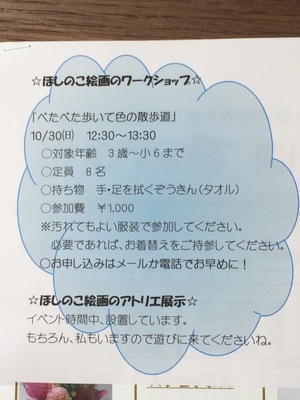 ☆ほしのこ絵画のワークショップ☆
「ぺたぺた歩いて色の散歩道」
10/30(日) 12:30～13:30
○対象年齢 3歳～小6まで
○定員 8名
○持ち物 手・足を拭くぞうきん(タオル)
○参加費 ￥1,000
※汚れてもよい服装で参加してください。
必要であれば、お着替えをご持参してください。
○お申し込みはメールか電話でお早めに！
☆ほしのこ絵画のアトリエ展示☆
イベント時間中、設置しています。
もちろん、私もいますので遊びに来てくださいね。